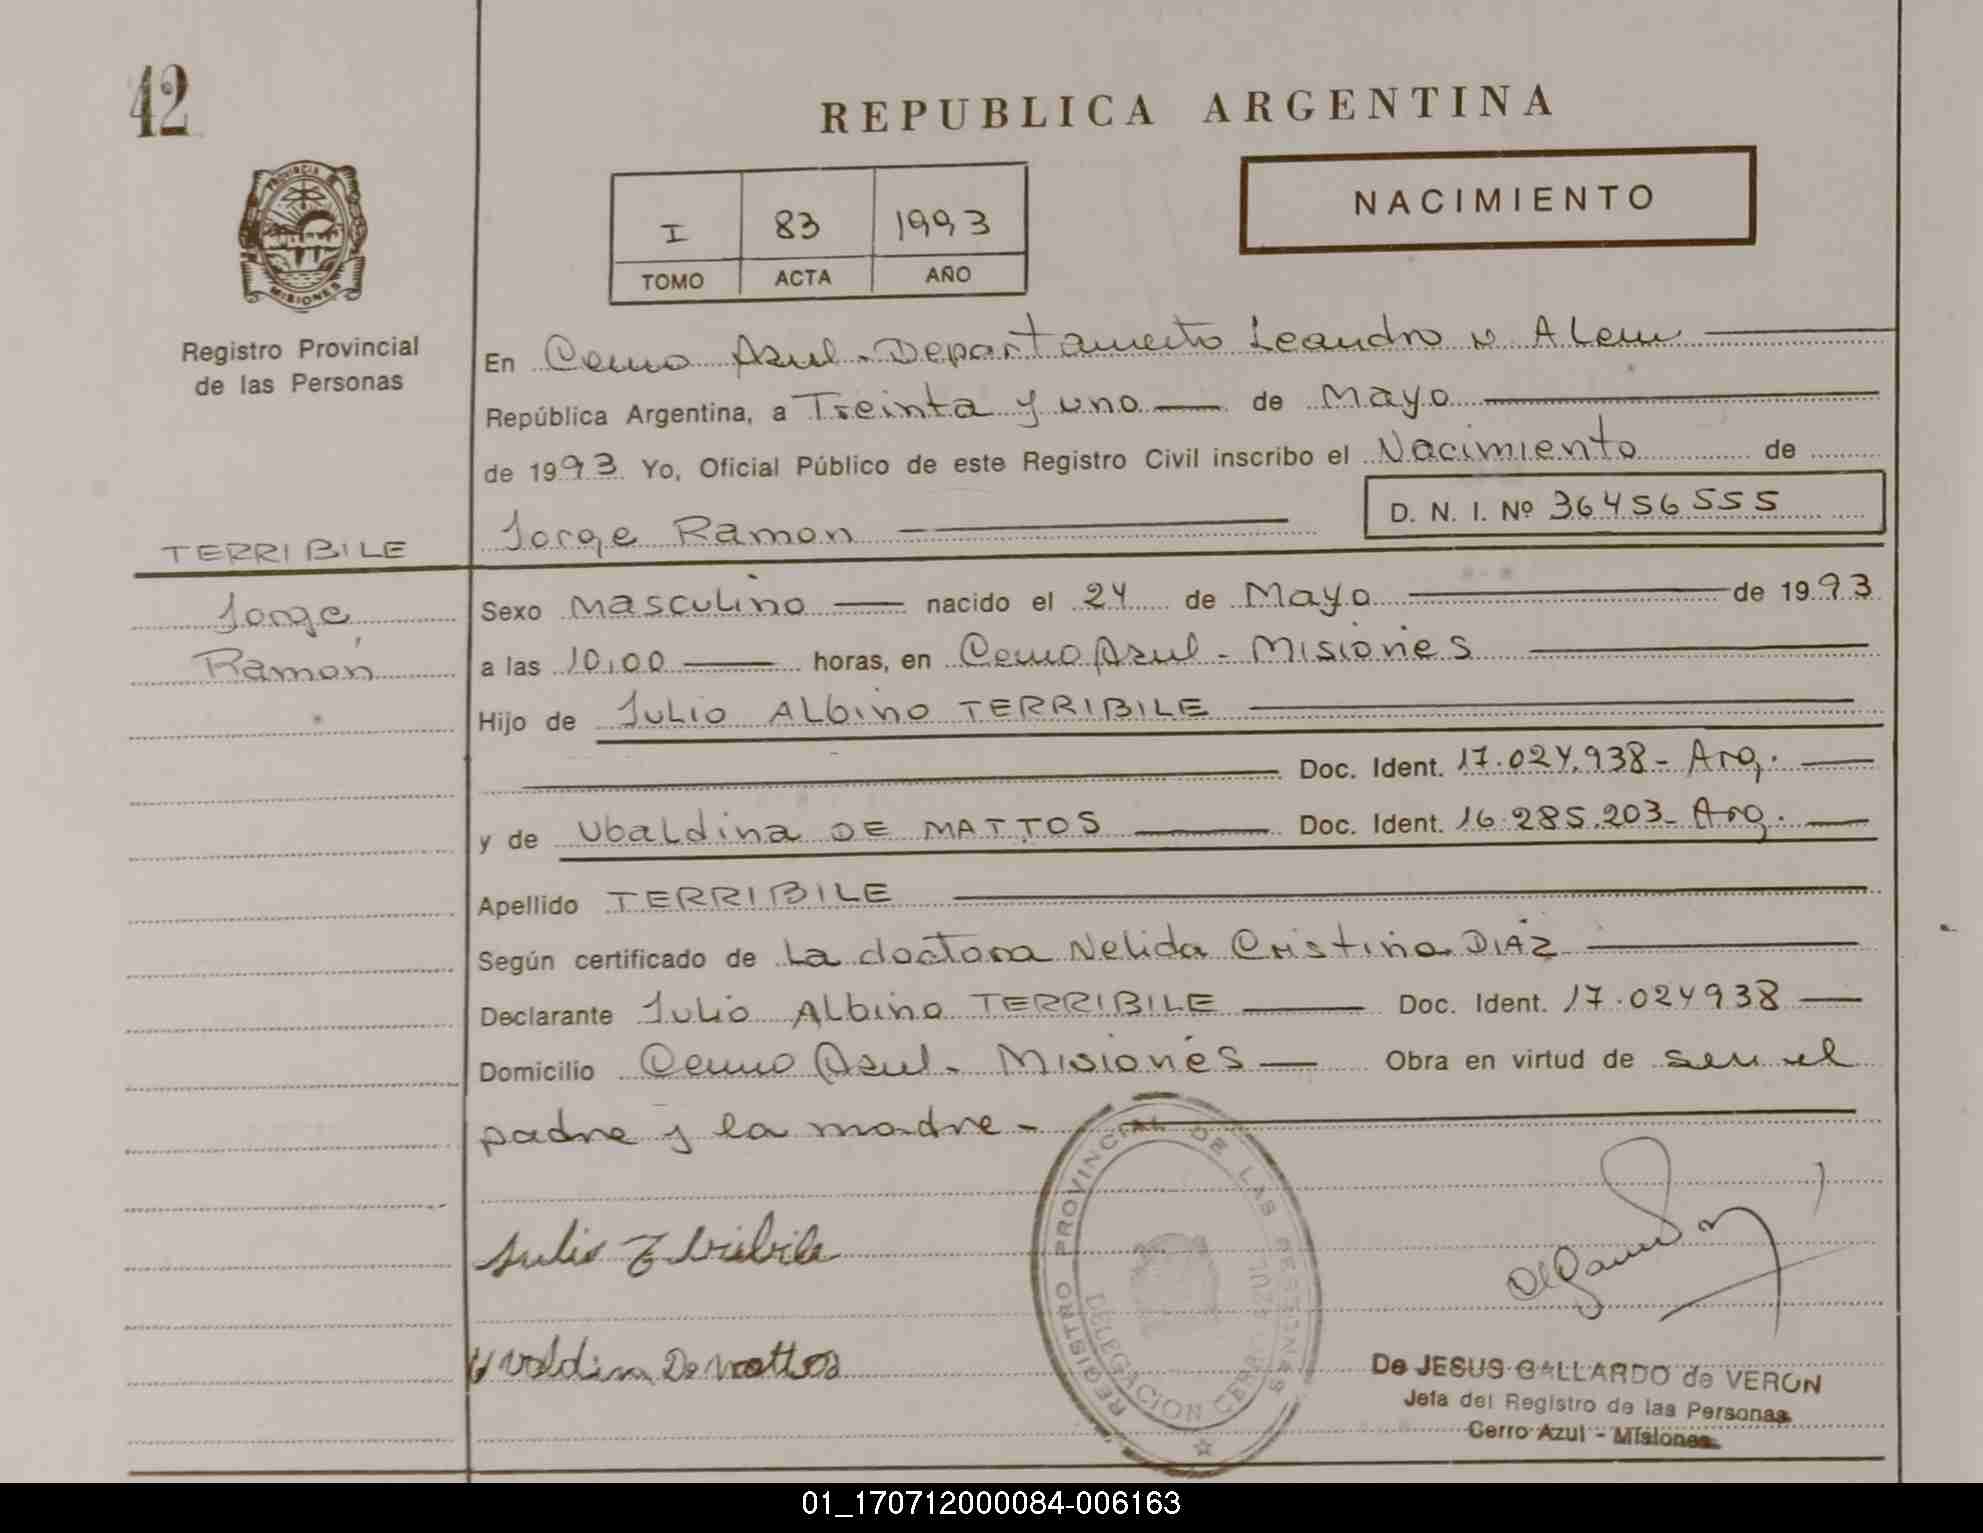 42
REPUBLICA ARGENTINA
PROVINCIA DE
MISIONES
I 83 1993
TOMO ACTA AÑO
NACIMIENTO
Registro Provincial
de las Personas
En Cerro Azul - Departamento Leandro N. Alem
República Argentina, a Treinta y uno de Mayo
de 1993 Yo, Oficial Público de este Registro Civil inscribo el Nacimiento de
Jorge Ramon D. N. I. Nº 36456555
TERRIBILE
Jorge
Ramon
Sexo Masculino nacido el 24 de Mayo de 1993
a las 10,00 horas, en Cerro Azul - Misiones
Hijo de Julio Albino TERRIBILE
Doc. Ident. 17.024.938 - Arg.
y de Ubaldina DE MATTOS Doc. Ident. 16.285.203 - Arg.
Apellido TERRIBILE
Según certificado de La doctora Nelida Cristina DIAZ
Declarante Julio Albino TERRIBILE Doc. Ident. 17.024938
Domicilio Cerro Azul - Misiones Obra en virtud de ser el
padre y la madre -
REGISTRO PROVINCIAL DE LAS PERSONAS
DELEGACION CERRO AZUL
Julio Terribile
Uvaldina De Mattos
De JESUS GALLARDO de VERON
Jefa del Registro de las Personas
Cerro Azul - Misiones
01_170712000084-006163